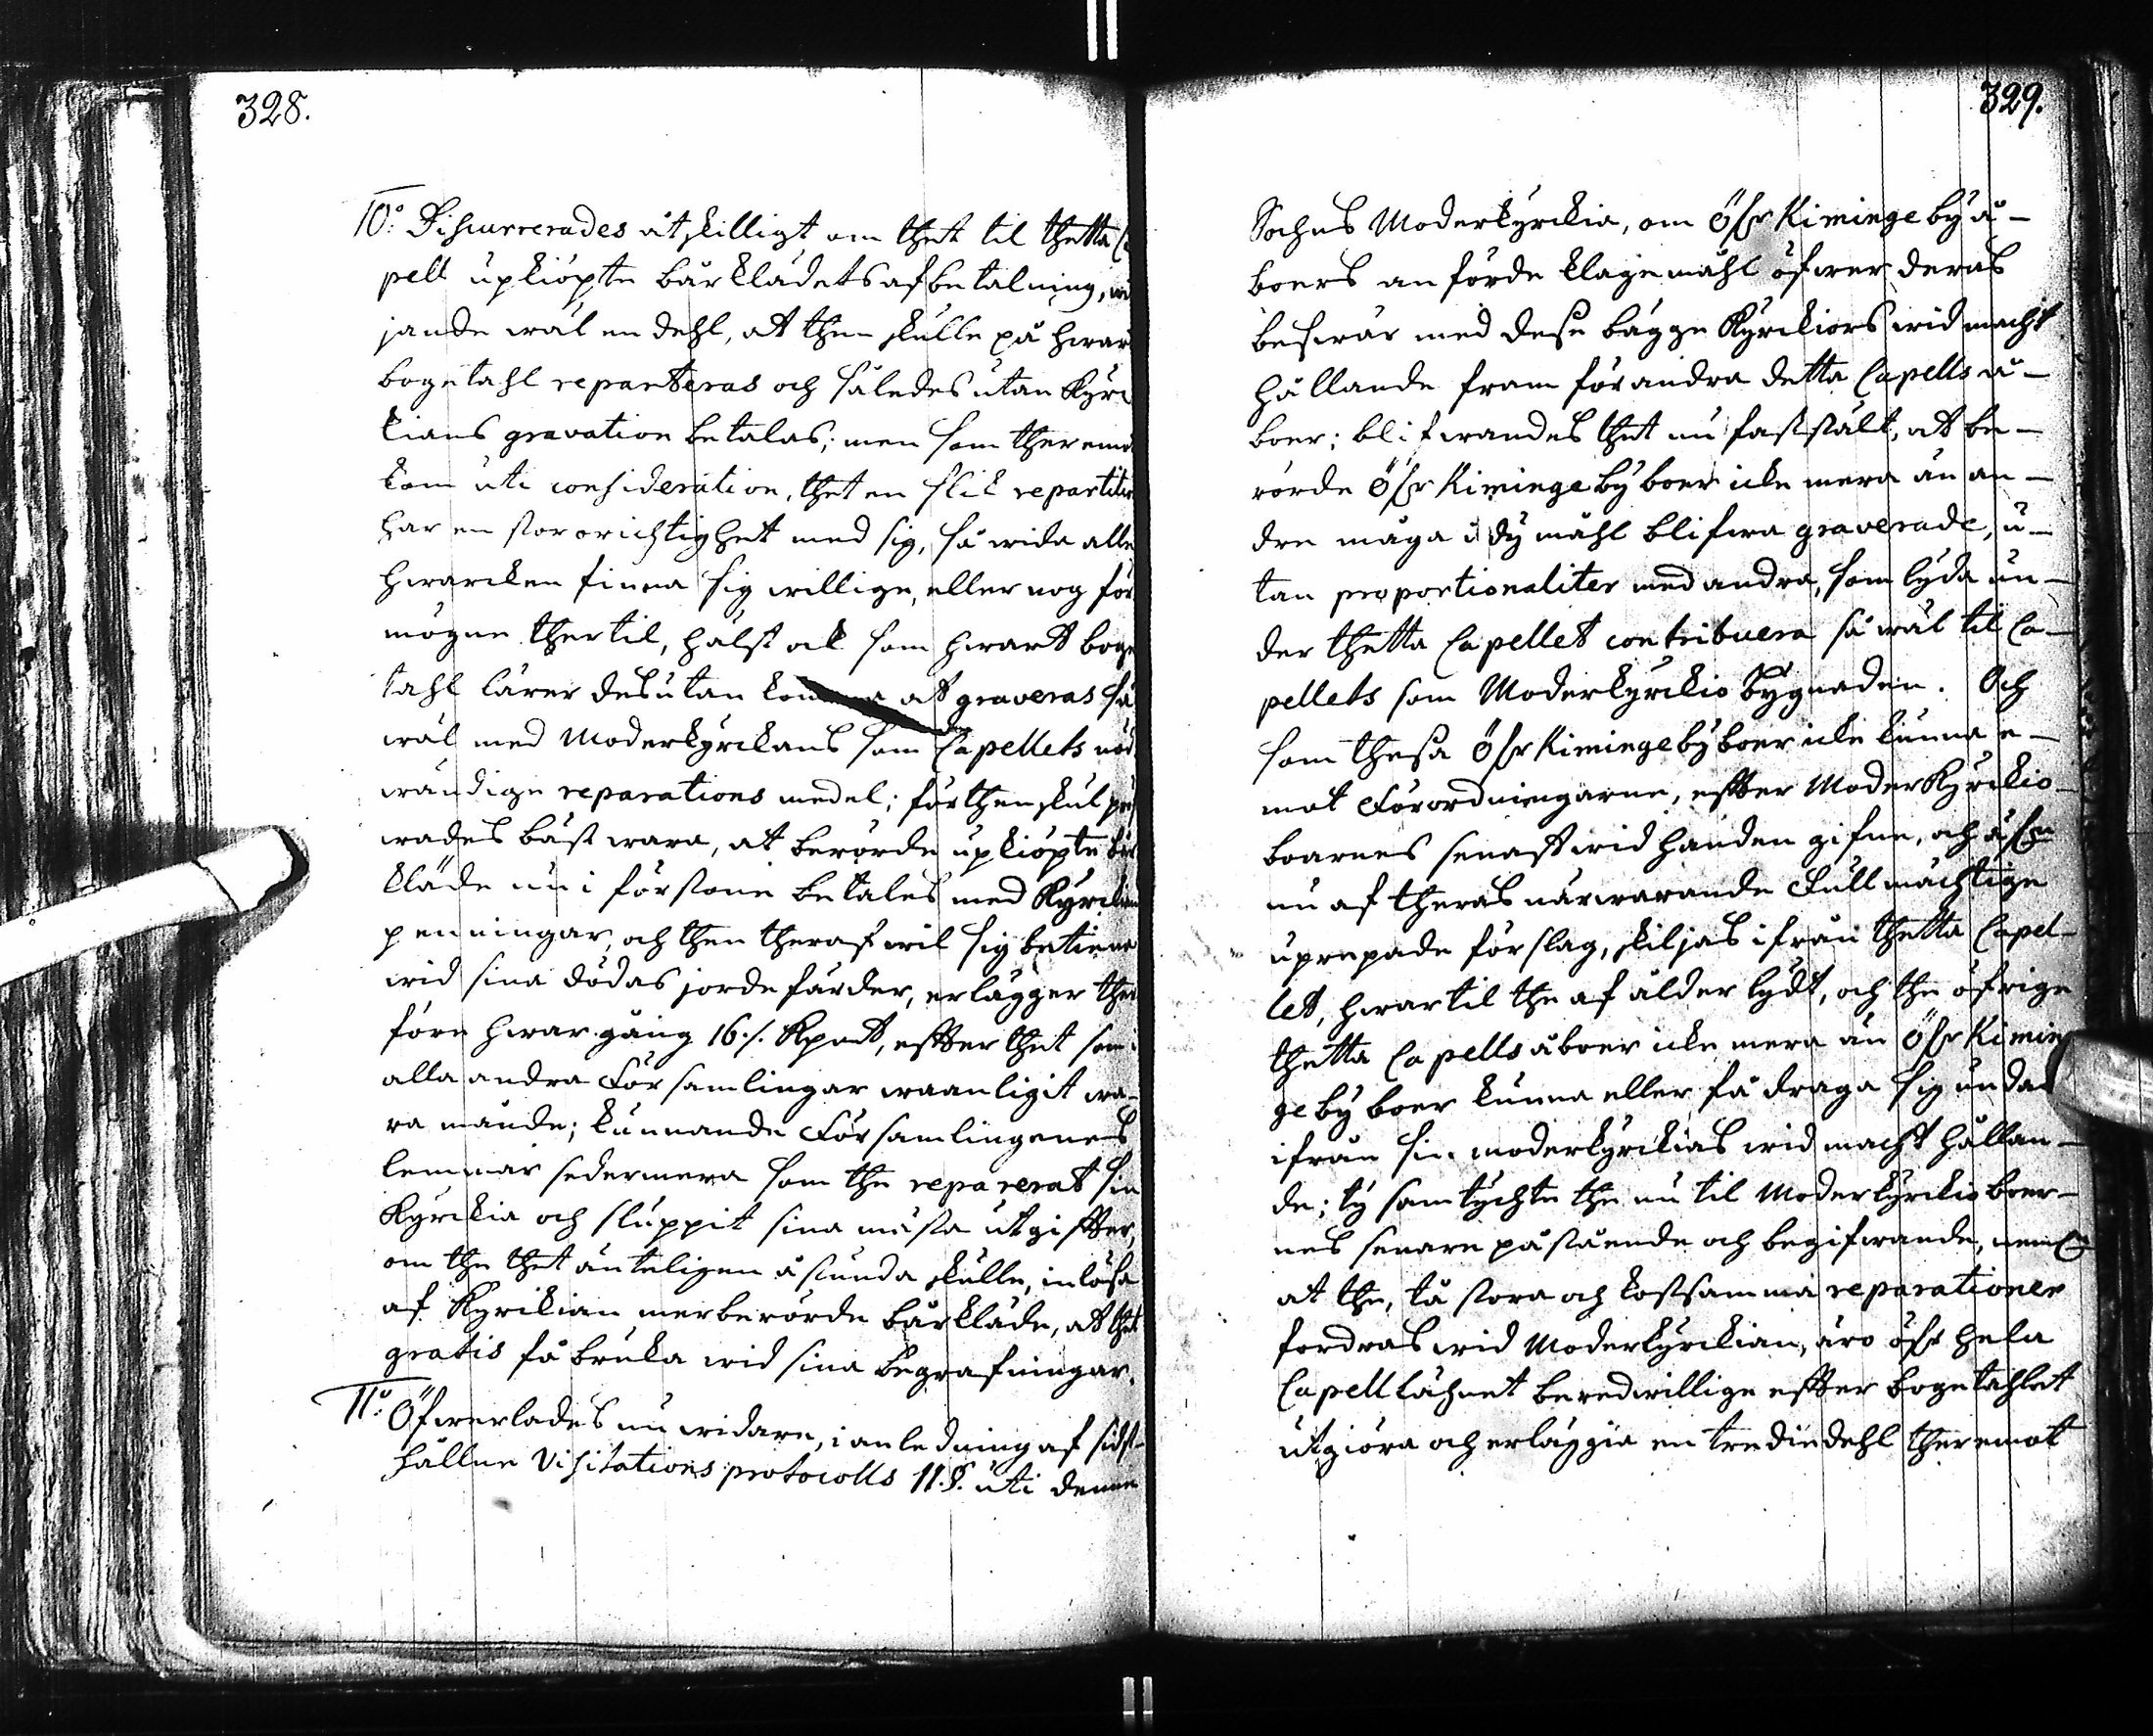 328.
10:o Discurrerades åtskilligt om thet til thetta Ca
pell upkiöpte bårklädets afbetalning, wil
jande wäl en dehl, at then skulle på hwart
bogetahl reparteras och således utan Kyrc
kians gravation betalas; men som theremo
kom uti consideration, thet en slik repartition
har en stor orichtighet med sig, så wida alle
hwarcken finna sig willige, eller nog för
mögne thertil, hälst ok som hwart boge
tahl lärer desutan komma at graveras så
wäl med Moderkyrckans som Capellets nöd
wändige reparations medel; för then skul prö
wades bäst wara, at berörde upkiöpte bår
kläde nu i förstone betales med Kyrckians
penningar, och then theraf wil sig betiena
wid sina dödas jordefärder, erlägger ther
före hwar gång 16./. Kpmt, effter thet som i
alla andra Församlingar waanligit wa-
ra månde; kunnande Församlingenes
lemmar sedermera som the reparerat sin
Kyrckia och sluppit sina mästa utgiffter,
om the thet änteligen åstunda skulle, inlösa
af Kyrckian merberörde bårkläde, at thet
gratis få bruka wid sina begrafningar.
11:o Öfwerlades nu widare, i anledning af sidst-
hållne Visitations protocolls 11.§. uti denne
329.
Sochns Moderkyrckia, om Öfr Kiminge by å-
boers anförde klagemåhl öfwer deras
beswär med dese bägge Kyrckiors wid macht
hållande fram för andra detta Capells å-
boer; blifwandes thet nu fastställt, at be-
rörde Öfr Kiminge byboer icke mera än an-
dre måga i dy måhl blifwa graverade, u-
tan proportionaliter med andra, som lyda un-
der thetta Capellet contribuera så wäl til Ca-
pellets som Moderkyrckio bygnaden. Och
som thessa Öfr Kiminge byboer icke kunna e-
mot Förordningarne, effter Moderkyrckio-
boarnes senast wid handen gifne, och äfwen
nu af theras närwarande Fullmächtige
uprepade förslag, skiljas ifrån thetta Capel-
let, hwartil the af ålder lydt, och the öfrige
thetta Capells åboer icke mera än Öfr Kimin
ge byboer kunna eller få draga sig undan
ifrån sin moderkyrckias wid macht hållan-
de; ty samtychte the nu til Moderkyrckioboer-
nes senare påstående och begifwande, neml:
at the, tå stora och kostsamma reparationer
fordras wid Moderkyrckian, äro öfr hela
Capell lähnet beredwillige effter bogetahlet
utgiöra och erläggia en trediedehl theremot